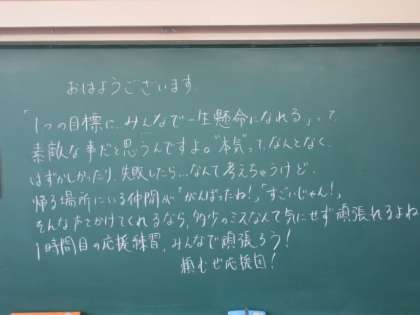 おはようございます
「1つの目標に、みんなで一生懸命になれる」って
素敵な事だと思うんですよ。"本気"って、なんとなく
はずかしかったり、失敗したら…なんて考えちゃうけど、
帰る場所にいる仲間が「がんばったね!」「すごいじゃん!」
そんな声をかけてくれるなら、多少のミスなんて気にせず頑張れるよね
1時間目の応援練習、みんなで頑張ろう!
頼むぜ応援団!